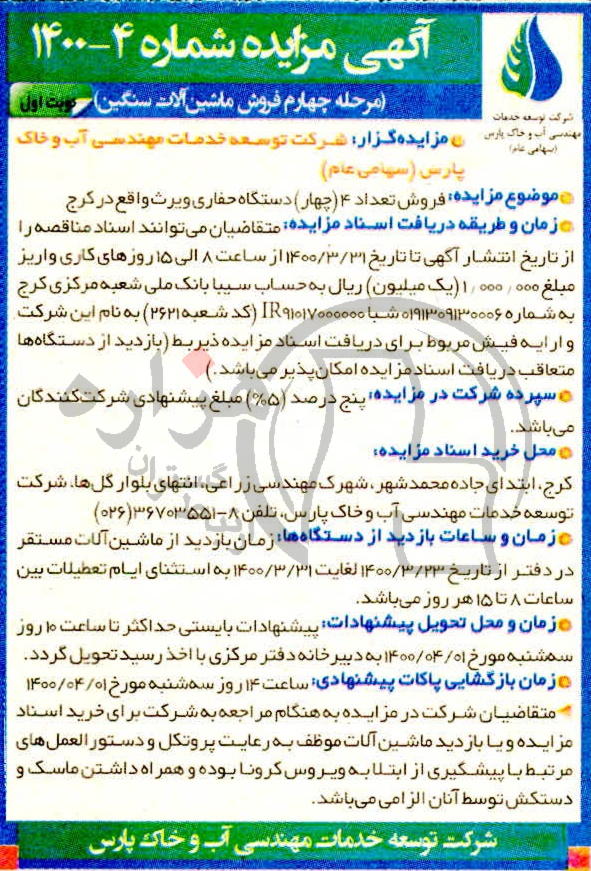 آگهی مزایده شماره ۴-۱۴۰۰
(مرحله چهارم فروش ماشین‌آلات سنگین)
نوبت اول
شرکت توسعه خدمات
مهندسی آب و خاک پارس
(سهامی عام)
مزایده‌گزار: شرکت توسعه خدمات مهندسی آب و خاک
پارس (سهامی عام)
موضوع مزایده: فروش تعداد ۴ (چهار) دستگاه حفاری ویرث واقع در کرج
زمان و طریقه دریافت اسناد مزایده: متقاضیان می‌توانند اسناد مناقصه را
از تاریخ انتشار آگهی تا تاریخ ۱۴۰۰/۳/۳۱ از ساعت ۸ الی ۱۵ روزهای کاری و واریز
مبلغ ۱٫۰۰۰٫۰۰۰ (یک میلیون) ریال به حساب سیبا بانک ملی شعبه مرکزی کرج
به شماره ۰۱۹۱۱۳۰۹۱۳۰۰۰۶ شبا IR۹۱۰۱۷۰۰۰۰۰۰۰ (کد شعبه ۲۶۲۱) به نام این شرکت
و ارایه فیش مربوط برای دریافت اسناد مزایده ذیربط (بازدید از دستگاه‌ها
متعاقب دریافت اسناد مزایده امکان‌پذیر می‌باشد.)
سپرده شرکت در مزایده: پنج درصد (۵%) مبلغ پیشنهادی شرکت‌کنندگان
می‌باشد.
محل خرید اسناد مزایده:
کرج، ابتدای جاده محمدشهر، شهرک مهندسی زراعی، انتهای بلوار گل‌ها، شرکت
توسعه خدمات مهندسی آب و خاک پارس، تلفن ۸-۳۶۷۰۳۵۵۱(۰۲۶)
زمان و ساعات بازدید از دستگاه‌ها: زمان بازدید از ماشین‌آلات مستقر
در دفتر از تاریخ ۱۴۰۰/۳/۲۳ لغایت ۱۴۰۰/۳/۳۱ به استثنای ایام تعطیلات بین
ساعات ۸ تا ۱۵ هر روز می‌باشد.
زمان و محل تحویل پیشنهادات: پیشنهادات بایستی حداکثر تا ساعت ۱۰ روز
سه‌شنبه مورخ ۱۴۰۰/۰۴/۰۱ به دبیرخانه دفتر مرکزی با اخذ رسید تحویل گردد.
زمان بازگشایی پاکات پیشنهادی: ساعت ۱۴ روز سه‌شنبه مورخ ۱۴۰۰/۰۴/۰۱
متقاضیان شرکت در مزایده به هنگام مراجعه به شرکت برای خرید اسناد
مزایده و یا بازدید ماشین‌آلات موظف به رعایت پروتکل و دستورالعمل‌های
مرتبط با پیشگیری از ابتلا به ویروس کرونا بوده و همراه داشتن ماسک و
دستکش توسط آنان الزامی می‌باشد.
شرکت توسعه خدمات مهندسی آب و خاک پارس